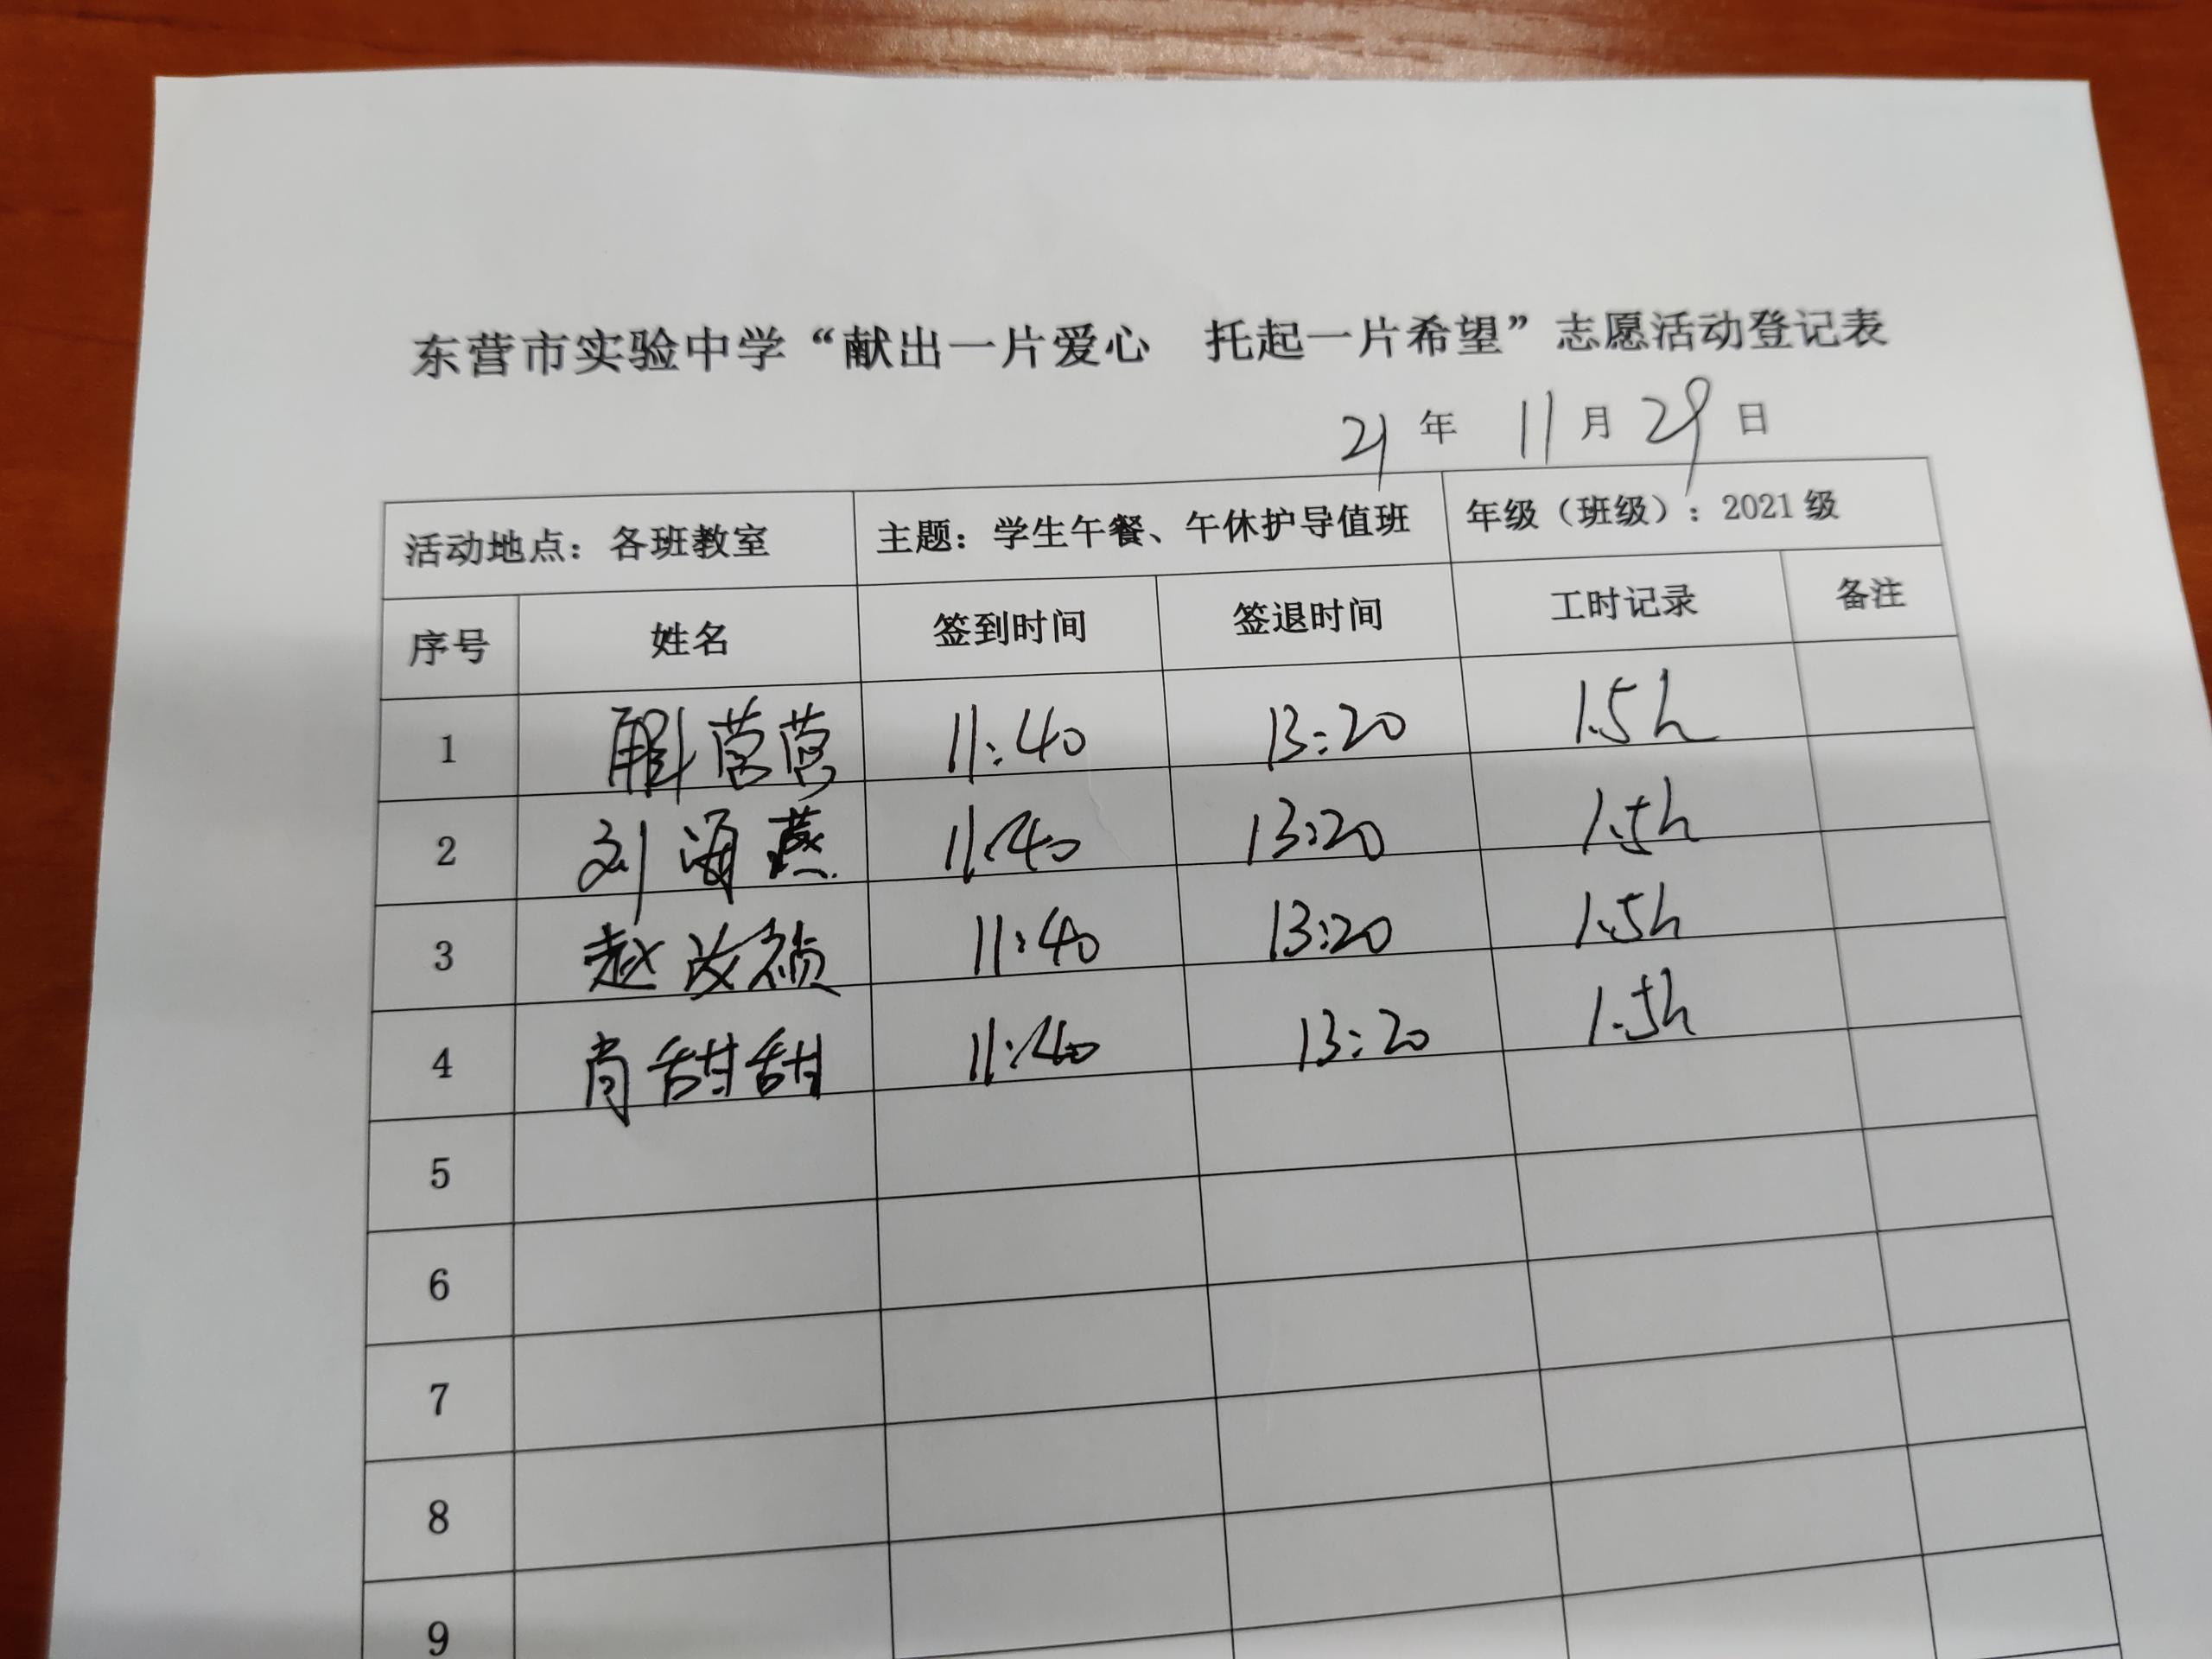 东营市实验中学“献出一片爱心 托起一片希望”志愿活动登记表
21 年 11 月 29 日
活动地点：各班教室 主题：学生午餐、午休护导值班 年级（班级）：2021 级
序号 姓名 签到时间 签退时间 工时记录 备注
1 11:40 13:20 1.5h
2 刘海燕 11:40 13:20 1.5h
3 赵 11:40 13:20 1.5h
4 肖甜甜 11:40 13:20 1.5h
5
6
7
8
9